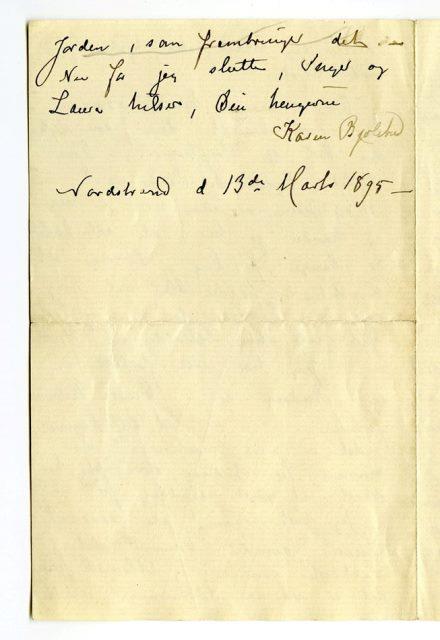 Jorden, som frembringer det
Nu får jeg slutte, Inger og
Laura hilser, Din hengivne
Karen Bjølstad
Nordstrand d 13de Marts 1895